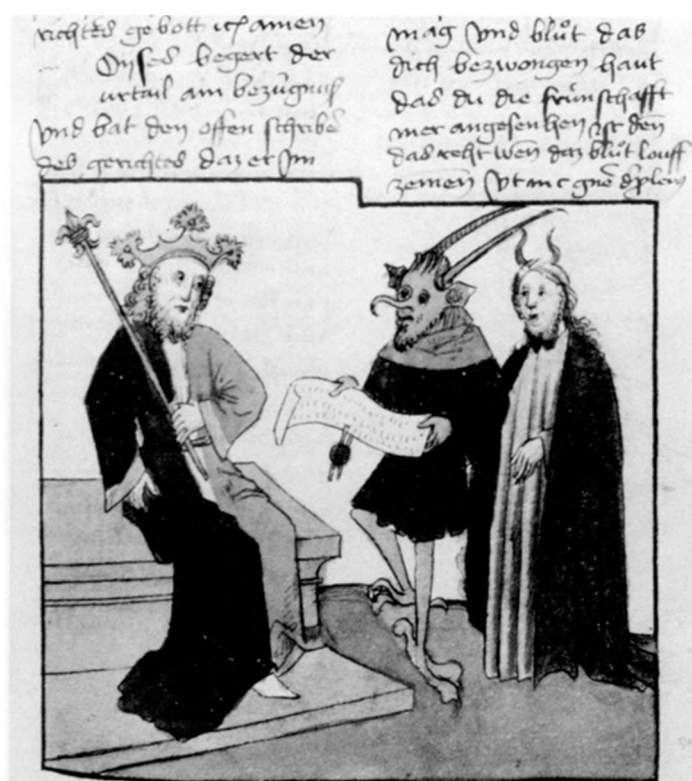 richtes gebott ich amen
Dyses begert der
urtail am bezügnuß
Vnd bat den offen schriber
des gerichtes daz er im
mag Vnd blůt das
dich bezwongen haut
das du die frünschafft
mer angesenhen den
das reht wen daz blůt louff
zemen Vt in c